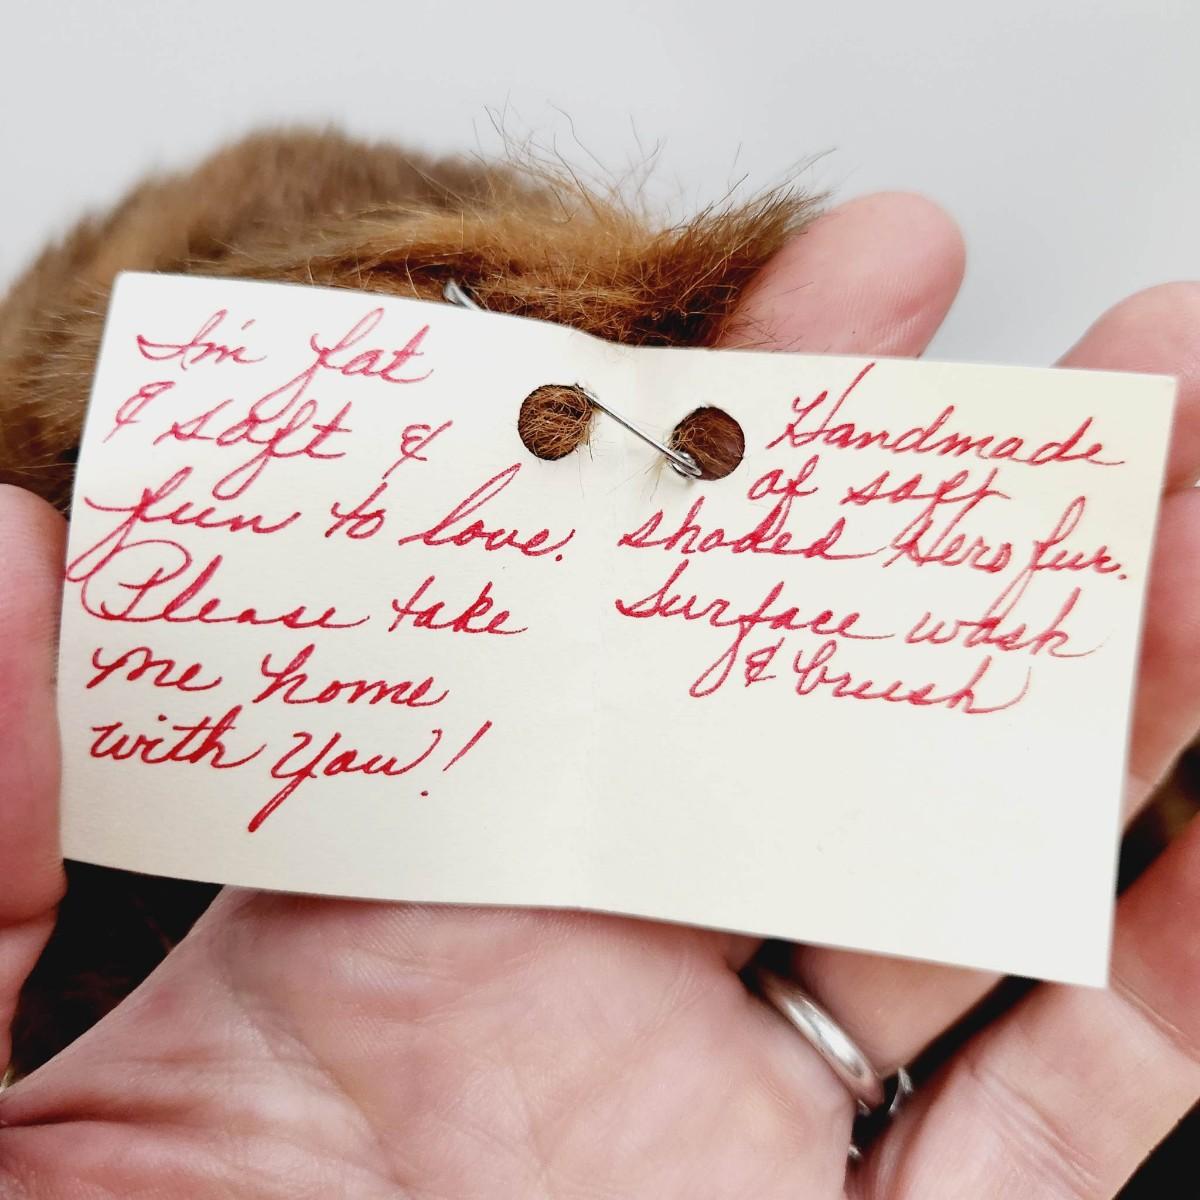 I'm fat
& soft &
fun to love.
Please take
me home
with You!
Handmade
of soft
shaded fur.
Surface wash
& brush